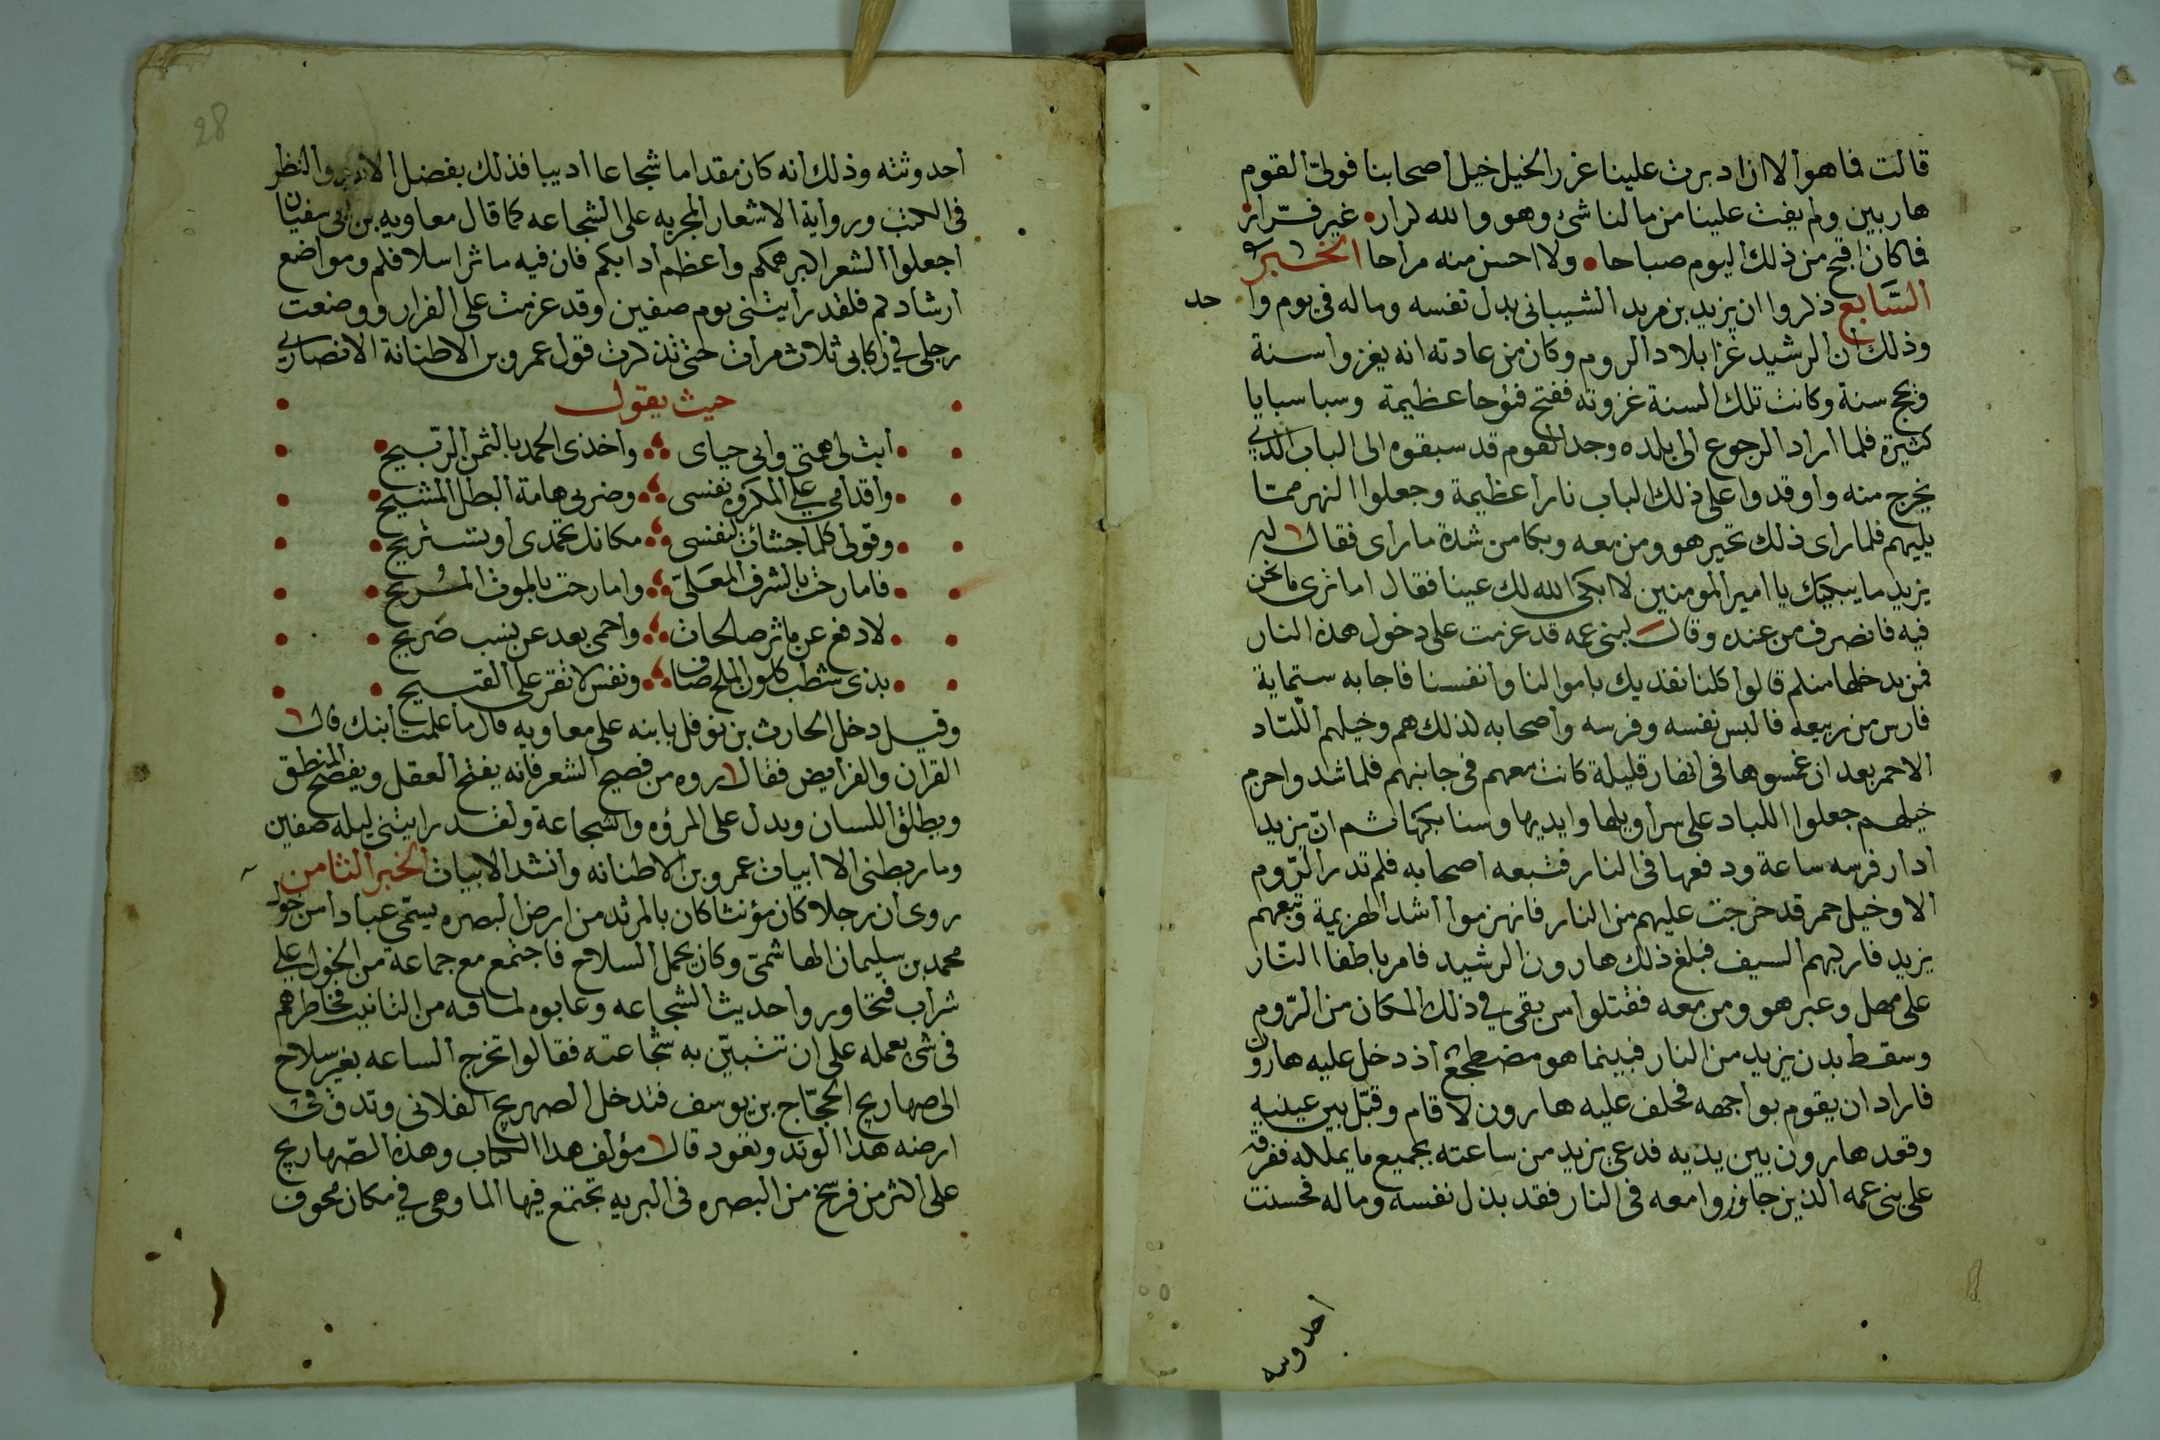 قالت فما هو الا ان ادبرت علينا غرر الخيل خيل اصحابنا فولّى القوم
هاربين ولم يفت علينا من مالنا شئ وهو والله كرار غير فرّار
فما كان اقبح من ذلك اليوم صباحا ولا احسن منه مراحا الخبر
السّابع ذكروا ان يزيد بن مزيد الشيبانى بذل نفسه وماله فى يوم واحد
وذلك ان الرشيد غزا بلاد الروم وكان من عادته انه يغزوا سنة
ويحج سنة وكانت تلك السنة غزوته ففتح فتوحا عظيمة وسبا سبايا
كثيرة فلما اراد الرجوع الى بلده وجد القوم قد سبقوه الى الباب الذى
يخرج منه واوقدوا على ذلك الباب نارا عظيمة وجعلوا النهر ممّا
يليهم فلما راى ذلك تحير هو ومن معه وبكا من شدة ما راى فقال له
يزيد ما يبكيك يا امير المومنين لا ابكى الله لك عينا فقال اما ترى ما نحن
فيه فانصرف من عنده وقال لبنى عمه قد عزمت على دخول هذه النار
فمن يدخلها منكم قالوا كلنا نفديك باموالنا وانفسنا فاجابه ستماية
فارس من ربيعة فالبس نفسه وفرسه واصحابه كذلك هم وخيلهم اللّباد
الاحمر بعد ان غمسوها فى انهار قليلة كانت معهم فى جانبهم فلما شد واحزم
خيلهم جعلوا اللباد على سراويلها وايديها وسنابكها ثم انّ يزيدا
ادار فرسه ساعة ودفعها فى النار فتبعه اصحابه فلم تدر الرّوم
الا وخيل حمر قد خرجت عليهم من النار فانهزموا أشد الهزيمة وتبعهم
يزيد فاركبهم السيف فبلغ ذلك هارون الرشيد فامر باطفا النّار
على مهل وعبر هو ومن معه فقتلوا من بقى فى ذلك المكان من الرّوم
وسقط بدن يزيد من النار فبينما هو مضطجع اذ دخل عليه هارون
فاراد ان يقوم بواجبه فحلف عليه هارون لا قام وقبّل بين عينيه
وقعد هارون بين يديه فدعى يزيد من ساعته بجميع ما يملكه ففرقه
على بنى عمه الذين جاوزوا معه فى النار فقد بذل نفسه وماله فحسنت
احدوثته
28
احدوثته وذلك انه كان مقداما شجاعا اديبا فذلك بفضل الادب والنظر
فى الكتب ورواية الاشعار المجربه على الشجاعه كما قال معاويه بن ابى سفيان
اجعلوا الشعر اكبر همكم واعظم ادابكم فان فيه ماثر اسلافكم ومواضع
ارشادكم فلقد رايتنى يوم صفين وقد عزمت على الفرار ووضعت
رجلى فى ركابى ثلاث مرات حتى تذكرت قول عمرو بن الاطنابة الانصارى
حيث يقول
ابت لى همتى وابى حياى واخذى الحمد بالثمن الربيح
واقدامى على المكروه نفسى وضربى هامة البطل المشيح
وقولى كلما جشات لنفسى مكانك تحمدى او تستريحى
فاما رحت بالشرف المعلّى واما رحت بالموت المُريح
لادفع عن ماثر صالحات واحمى بعد عن نسب صَريح
بذى شطب كلون الملح صاف ونفس لا تقر على القبيح
وقيل دخل الحارث بن نوفل بابنه على معاويه قال ما علمت ابنك قال
القران والفرايض فقال روه من فصيح الشعر فانه يفتح العقل ويفصح المنطق
ويطلق اللسان ويدل على المرؤه والشجاعة ولقد رايتنى ليله صفين
وما ربطنى الا ابيات عمرو بن الاطنابه وانشد الابيات الخبر الثامن
روى ان رجلا كان مؤنثا كان بالمربد من ارض البصره يسمّى عبادا من خول
محمد بن سليمان الهاشمىّ وكان يحمل السلاح فاجتمع مع جماعة من الخول على
شراب فتحاوروا حديث الشجاعه وعابوه لما فيه من التانيث فخاطرهم
فى شى يعمله على ان تتبيّن به شجاعته فقالوا تخرج الساعه بغير سلاح
الى صهاريج الحجّاج بن يوسف فتدخل الصهريج الفلانى وتدق فى
ارضه هذا الوتد وتعود قال مؤلف هذا الكتاب وهذه الصّهاريج
على اكثر من فرسخ من البصره فى البريه تجتمع فيها الما وهى فى مكان مخوف